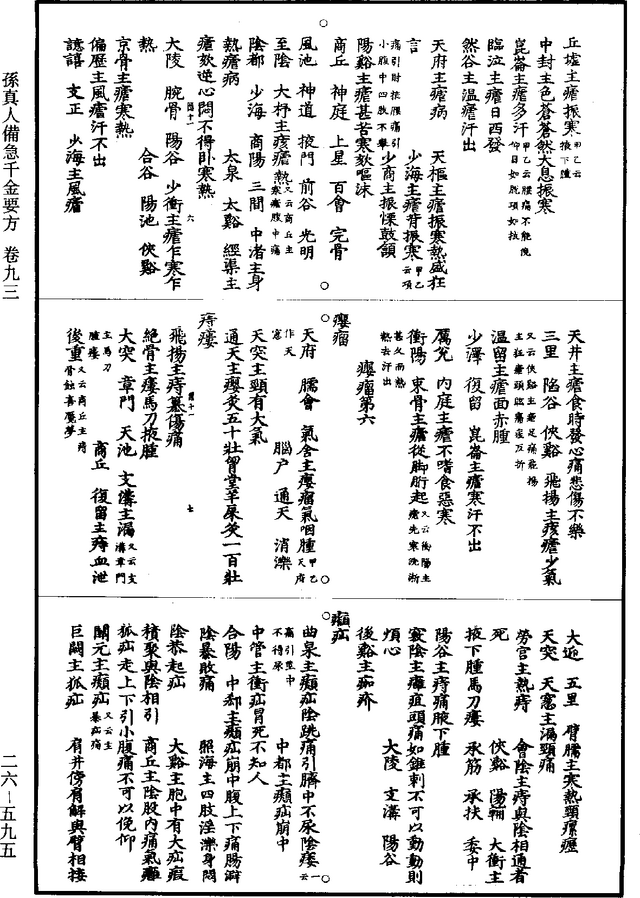 孫真人備急千金要方 卷九三
二六-五九五
丘墟主瘧振寒甲乙云掖下腫
中封主色蒼蒼然太息振寒
崑崙主瘧多汗甲乙云腰痛不能俛仰目如脫項如拔
臨泣主瘧日西發
然谷主溫瘧汗出
天府主瘧病 天樞主瘧振寒熱盛狂
言 少海主瘧背振寒甲乙云項
痛引肘掖腰痛引小腹中四肢不舉 少商主振慄鼓頷
陽谿主瘧甚苦寒欬嘔沫
商丘 神庭 上星 百會 完骨
風池 神道 掖門 前谷 光明
至陰 大杼主痎瘧熱又云商丘主寒瘧腹中痛
陰都 少海 商陽 三間 中渚主身
熱瘧病 太泉 太谿 經渠主
瘧欬逆心悶不得卧寒熱
大陵 腕骨 陽谷 少衝主瘧乍寒乍
熱 合谷 陽池 俠谿
京骨主瘧寒熱
偏歷主風瘧汗不出
譩譆 支正 少海主風瘧
天井主瘧食時發心痛悲傷不樂
三里 陷谷 俠谿 飛揚主痎瘧少氣
溫留主瘧面赤腫
少澤 復留 崑崙主瘧寒汗不出
厲兌 內庭主瘧不嗜食惡寒
衝陽 束骨主瘧從脚胻起又云衝陽主瘧先寒洗淅
甚久而熱熱去汗出
癭瘤
癭瘤第六
天府 臑會 氣舍主癭瘤氣咽腫甲乙天府
作天窓 腦戶 通天 消濼
天突主頸有大氣
通天主癭灸五十壯胷堂羊屎灸一百壯
痔瘻
飛揚主痔篡傷痛
絕骨主瘻馬刀掖腫
大突 章門 天池 支溝主漏又云支溝章門
主馬刀腫瘻 商丘 復留主痔血泄
後重又云商丘主痔骨蝕喜魘夢
大迎 五里 臂臑主寒熱頸瘰癧
天突 天窓主漏頸痛
勞宮主熱痔 會陰主痔與陰相通者
死 俠谿 陽輔 太衝主
掖下腫馬刀瘻 承筋 承扶 委中
陽谷主痔痛腋下腫
竅陰主癰疽頭痛如錐刺不可以動動則
煩心 大陵 支溝 陽谷
後谿主痂疥
㿗疝
曲泉主㿗疝陰跳痛引臍中不尿陰痿一云
痛引莖中不得尿 中都主㿗疝崩中
中管主衝疝冒死不知人
合陽 中郄主㿗疝崩中腹上下痛腸澼
陰暴敗痛 照海主四肢淫濼身悶
陰暴起疝 太谿主胞中有大疝瘕
積聚與陰相引 商丘主陰股內痛氣癰
狐疝走上下引小腹痛不可以俛仰
關元主㿗疝又云主暴疝痛
巨闕主狐疝 肩井傍肩解與臂相接